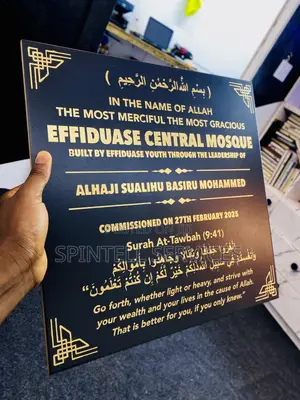 ( بِسْمِ اللهِ الرَّحْمٰنِ الرَّحِيْمِ )
IN THE NAME OF ALLAH
THE MOST MERCIFUL THE MOST GRACIOUS
EFFIDUASE CENTRAL MOSQUE
BUILT BY EFFIDUASE YOUTH THROUGH THE LEADERSHIP OF
ALHAJI SUALIHU BASIRU MOHAMMED
COMMISSIONED ON 27TH FEBRUARY 2025
Surah At-Tawbah (9:41)
انْفِرُوا خِفَافًا وَثِقَالًا وَجَاهِدُوا بِأَمْوَالِكُمْ
وَأَنْفُسِكُمْ فِي سَبِيلِ اللَّهِ ذَٰلِكُمْ خَيْرٌ لَكُمْ إِنْ كُنْتُمْ تَعْلَمُونَ
“Go forth, whether light or heavy, and strive with
your wealth and your lives in the cause of Allah.
That is better for you, if you only knew.”